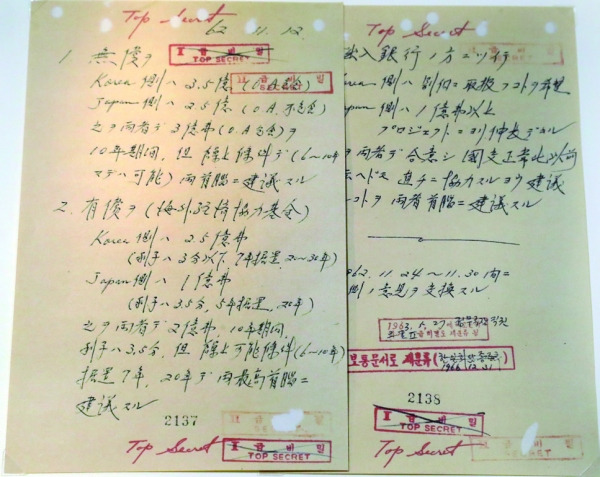 Top Secret
62. 11. 12.
II 급 비 밀
TOP SECRET
1. 無償ヲ
Korea側ハ 3.5億弗(O.A.含ム)
II 급 비 밀
SECRET
Japan側ハ 2.5億弗(O.A.不含ム)
之ヲ両者デ3億弗(O.A含ム)ヲ
10年期間, 但 繰上條件デ(6〜10年
マデハ可能) 両首脳ニ建議スル
2. 有償ヲ(海外経済協力基金)
Korea側ハ 2.5億弗
(利子ハ3分以下, 7年据置, 20〜30年)
Japan側ハ 1億弗
(利子ハ3.5分, 5年据置, 20年)
之ヲ両者デ2億弗, 10年期間,
利子ハ3.5分, 但 繰上ゲ可能條件(6〜10年)
据置7年, 20年デ両最高首脳ニ
建議スル
2137
Top Secret
II 급 비 밀
TOP SECRET
Top Secret
II 급 비 밀
TOP SECRET
入銀行ノ方ニツイテ
側ハ別個ニ取扱ヲコトヲ希望
側ハ1億弗以上
プロジェクトニヨリ伸長デキル
両者デ合意シ国交正常化以前
直チニ協力スルヨウ建議
コトヲ両者首脳ニ建議スル
962. 11. 24〜11. 30 内ニ
側ノ意見ヲ交換スル
1963.
보통문서로 재분류(
1966. 12. 31
2138
II 급 비 밀
TOP SECRET
Top Secret
II 급 비 밀
SECRET